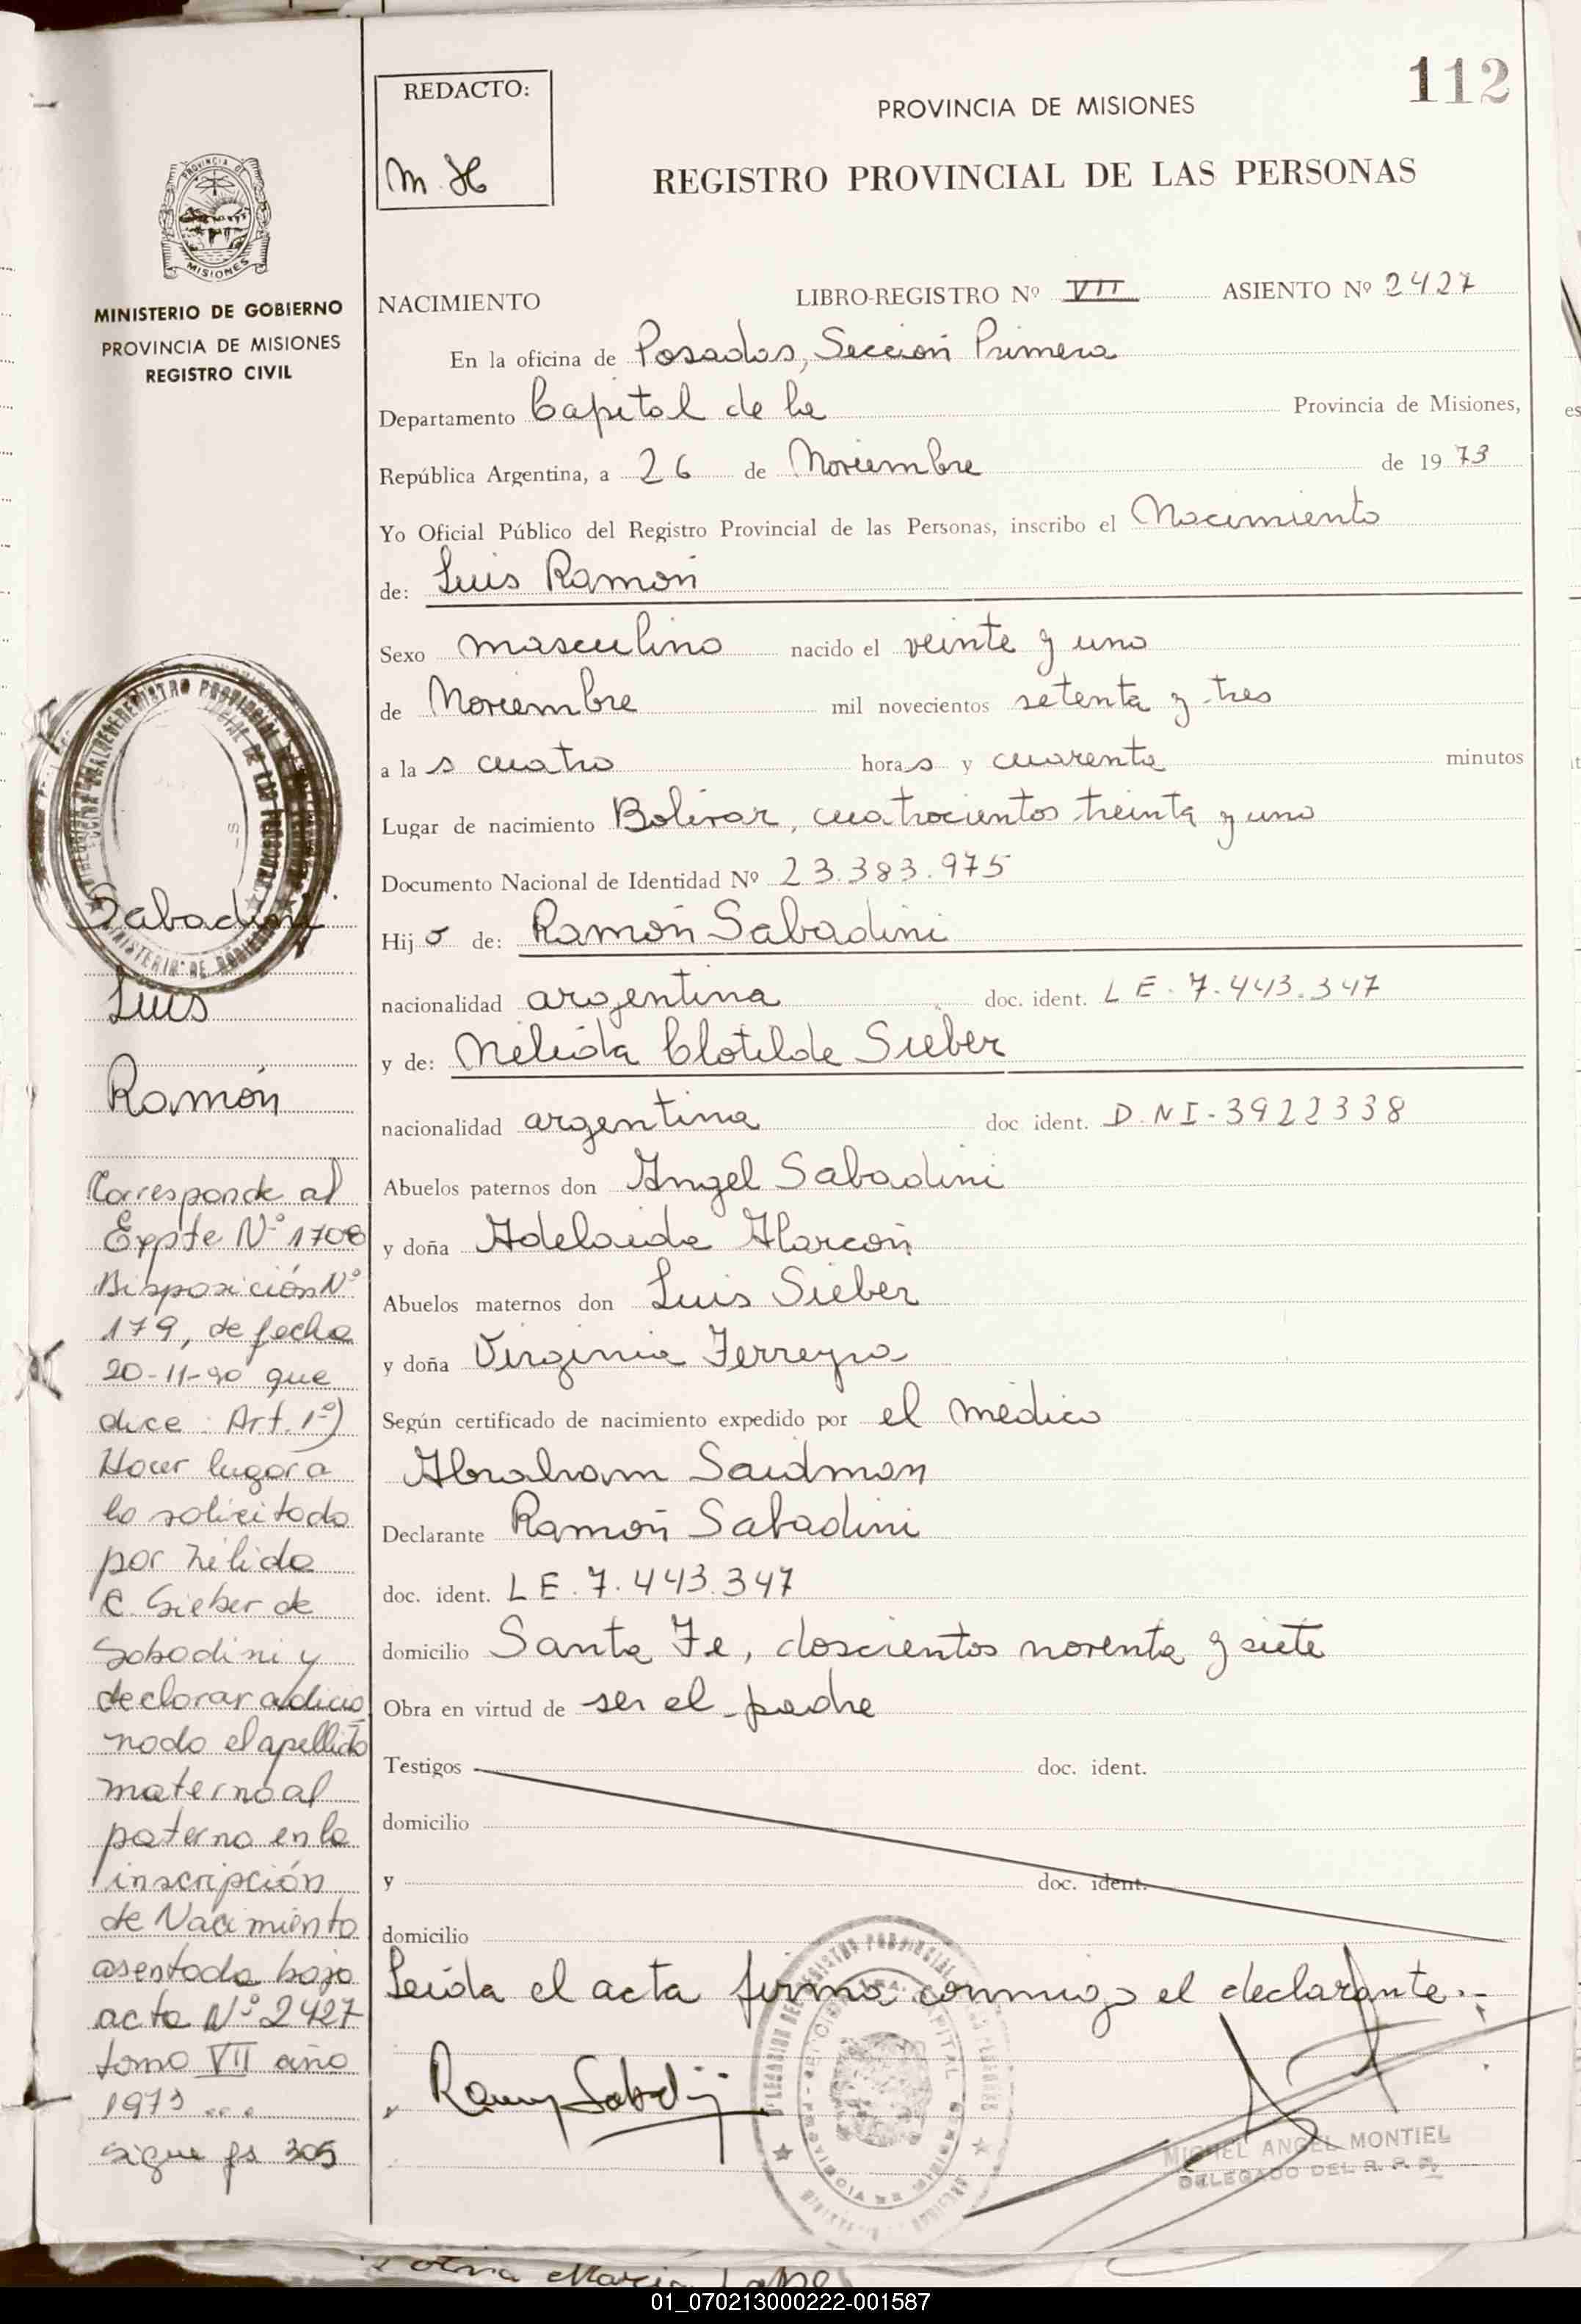 112
REDACTO:
M. H
PROVINCIA DE MISIONES
REGISTRO PROVINCIAL DE LAS PERSONAS
PROVINCIA DE
MISIONES
MINISTERIO DE GOBIERNO
PROVINCIA DE MISIONES
REGISTRO CIVIL
NACIMIENTO LIBRO-REGISTRO Nº VII ASIENTO Nº 2427
En la oficina de Posadas, Sección Primera
Departamento Capital de la Provincia de Misiones,
República Argentina, a 26 de Noviembre de 1973
Yo Oficial Público del Registro Provincial de las Personas, inscribo el Nacimiento
de: Luis Ramón
Sexo masculino nacido el veinte y uno
de Noviembre mil novecientos setenta y tres
a la s cuatro hora s y cuarenta minutos
Lugar de nacimiento Bolívar, cuatrocientos treinta y uno
Documento Nacional de Identidad Nº 23.383.975
Hij o de: Ramón Sabadini
nacionalidad argentina doc. ident. L E. 7.443.347
y de: Nélida Clotilde Sieber
nacionalidad argentina doc ident. D.N I-3922338
Abuelos paternos don Angel Sabadini
y doña Adelaida Alarcón
Abuelos maternos don Luis Sieber
y doña Virginia Ferreyra
Según certificado de nacimiento expedido por el médico
Abraham Saidman
Declarante Ramón Sabadini
doc. ident. L E. 7.443.347
domicilio Santa Fe, doscientos noventa y siete
Obra en virtud de ser el padre
Testigos doc. ident.
domicilio
y doc. ident.
domicilio
Leída el acta firma conmigo el declarante.-
MIGUEL ANGEL MONTIEL
DELEGADO DEL R. P. P.
Sabadini
Luis
Ramón
Corresponde al
Expte Nº 1708
Disposición Nº
179, de fecha
20-11-90 que
dice: Art. 1º)
Hacer lugar a
lo solicitado
por Nélida
C. Sieber de
Sabadini y
declarar adicio
nado el apellido
materno al
paterno en la
inscripción
de Nacimiento
asentada bajo
acta Nº 2427
tomo VII año
1973 ...
sigue fs 305
01_070213000222-001587